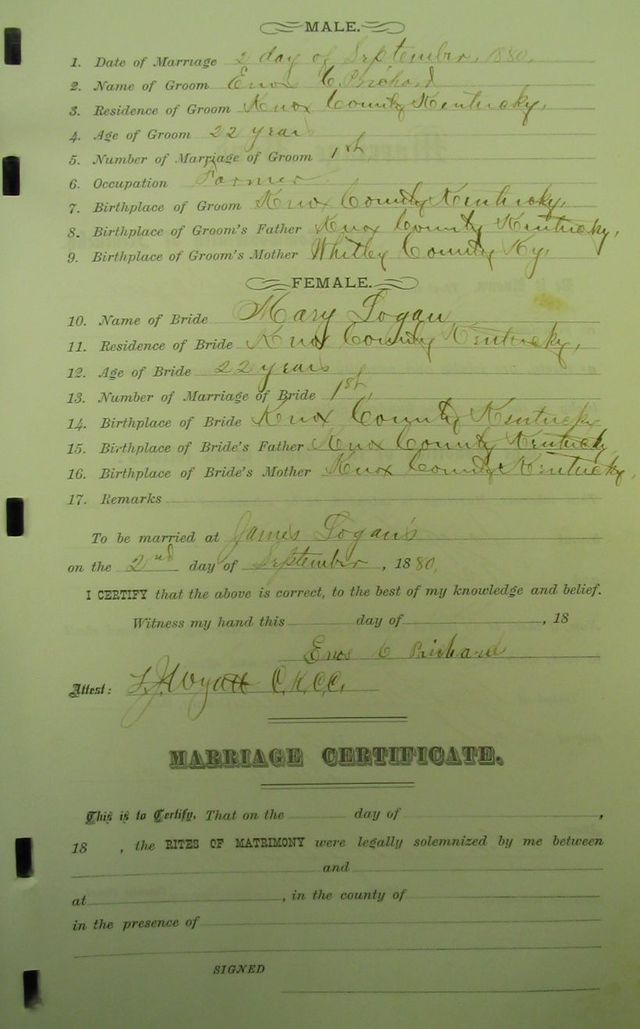 MALE.
1. Date of Marriage 2 day of September, 1880.
2. Name of Groom Enos C. Prichard
3. Residence of Groom Knox County Kentucky,
4. Age of Groom 22 years
5. Number of Marriage of Groom 1st
6. Occupation Farmer
7. Birthplace of Groom Knox County Kentucky,
8. Birthplace of Groom's Father Knox County Kentucky,
9. Birthplace of Groom's Mother Whitley County Ky,
FEMALE.
10. Name of Bride Mary Logan
11. Residence of Bride Knox County Kentucky,
12. Age of Bride 22 years
13. Number of Marriage of Bride 1st,
14. Birthplace of Bride Knox County Kentucky
15. Birthplace of Bride's Father Knox County Kentucky
16. Birthplace of Bride's Mother Knox County Kentucky,
17. Remarks
To be married at James Logan's
on the 2nd day of September, 1880,
I CERTIFY that the above is correct, to the best of my knowledge and belief.
Witness my hand this day of , 18
Enos C Prichard
Attest: Wyatt C.K.C.C.
MARRIAGE CERTIFICATE.
This is to Certify, That on the day of ,
18 , the RITES OF MATRIMONY were legally solemnized by me between
and
at , in the county of
in the presence of
SIGNED